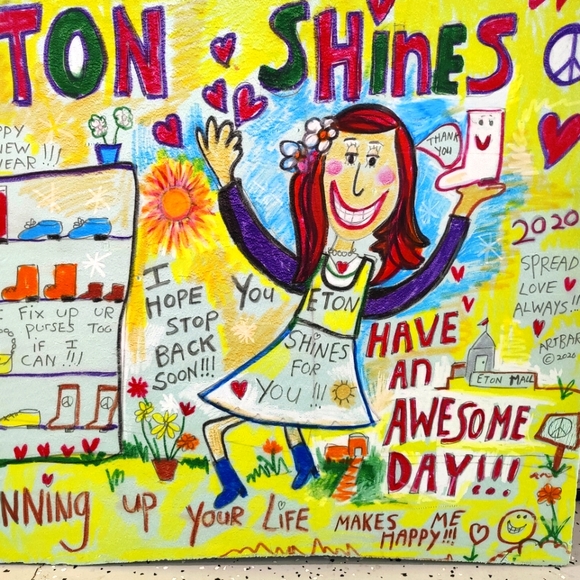 TON SHiNES
PPY
NEW
YEAR!!!
THANK
YOU
2020
SPREAD
LOVE
ALWAYS!!!
ARTBAR
© 2020
I
HOPE YOU
STOP
BACK
SOON!!!
ETON
SHINES
FOR
YOU!!!
FIX UP UR
PURSES TOO
IF I
CAN!!!
HAVE
An
AWESOME
DAY!!!
ETON MALL
NNiNG UP YOUR LiFE MAKES ME
HAPPY!!!